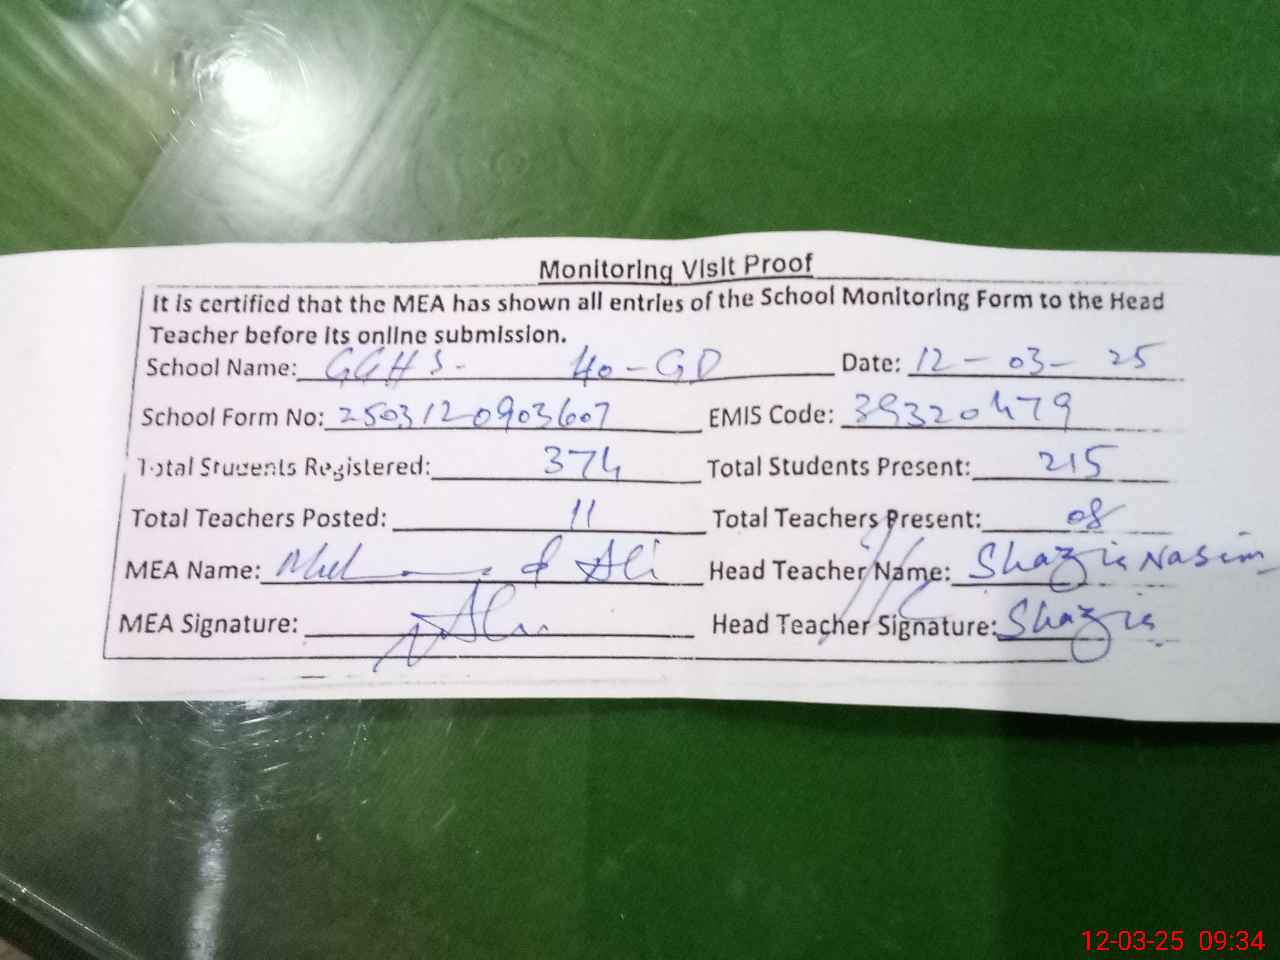 Monitoring Visit Proof
It is certified that the MEA has shown all entries of the School Monitoring Form to the Head
Teacher before its online submission.
School Name: GGHS- 40-GD Date: 12-03-25
School Form No: 2503120903607 EMIS Code: 39320479
Total Students Registered: 374 Total Students Present: 215
Total Teachers Posted: 11 Total Teachers Present: 08
MEA Name: Ali Head Teacher Name: Shazia Nasim
MEA Signature: Head Teacher Signature: Shazia
12-03-25 09:34